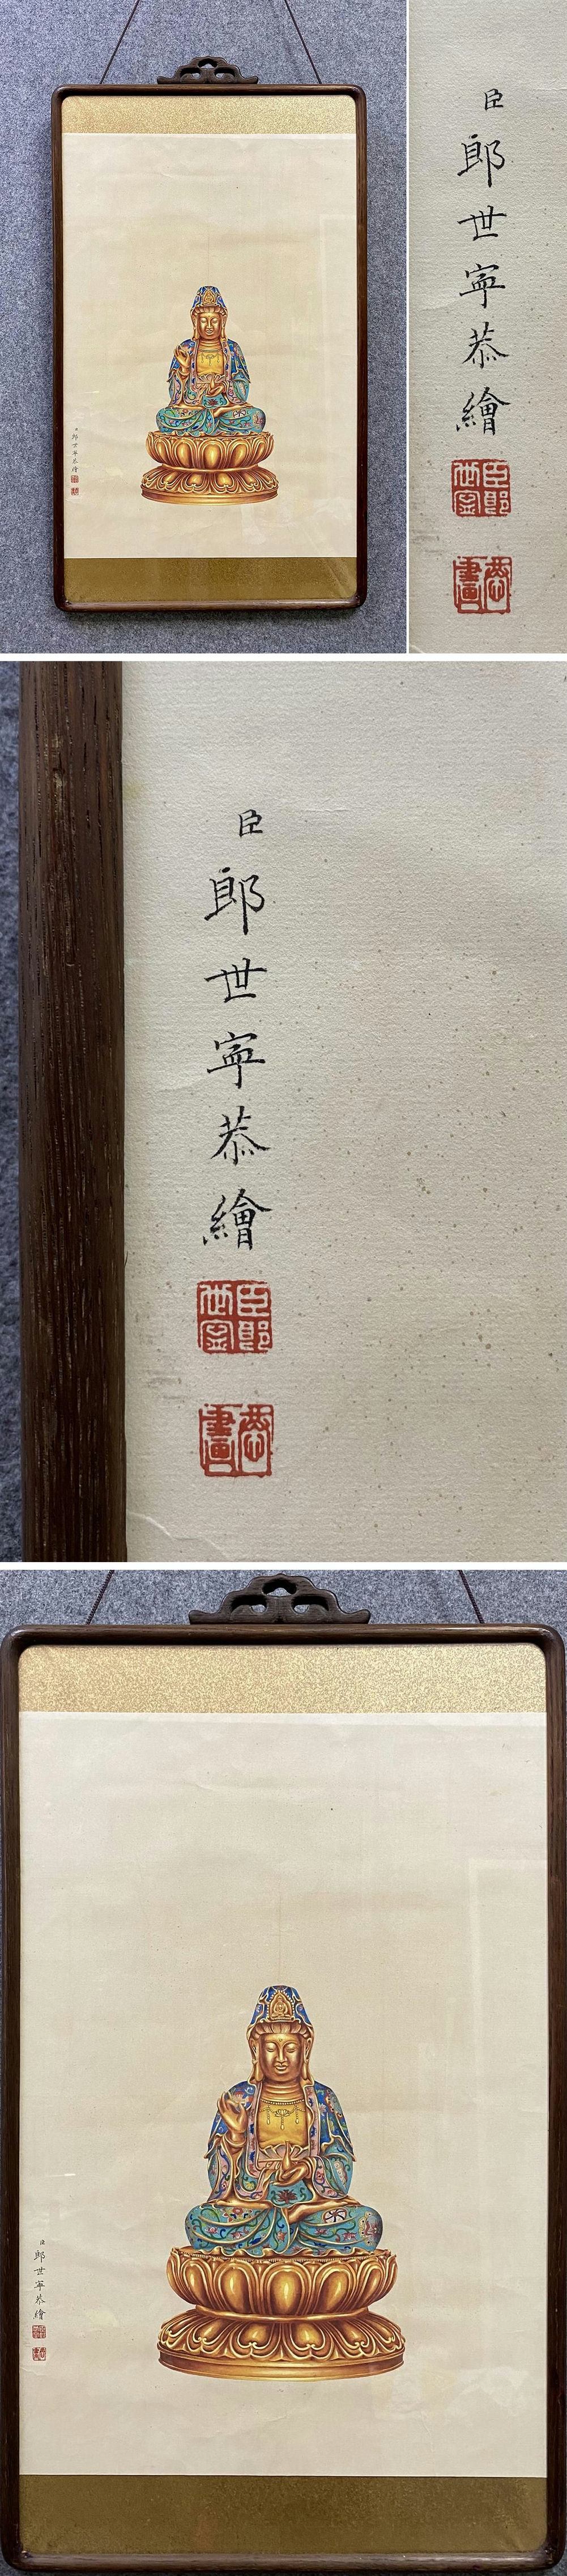 臣郎世寧恭繪
臣郎世寧
臣郎世寧恭繪
臣郎世寧
臣郎世寧恭繪
臣郎世寧
臣郎世寧恭繪
臣郎世寧